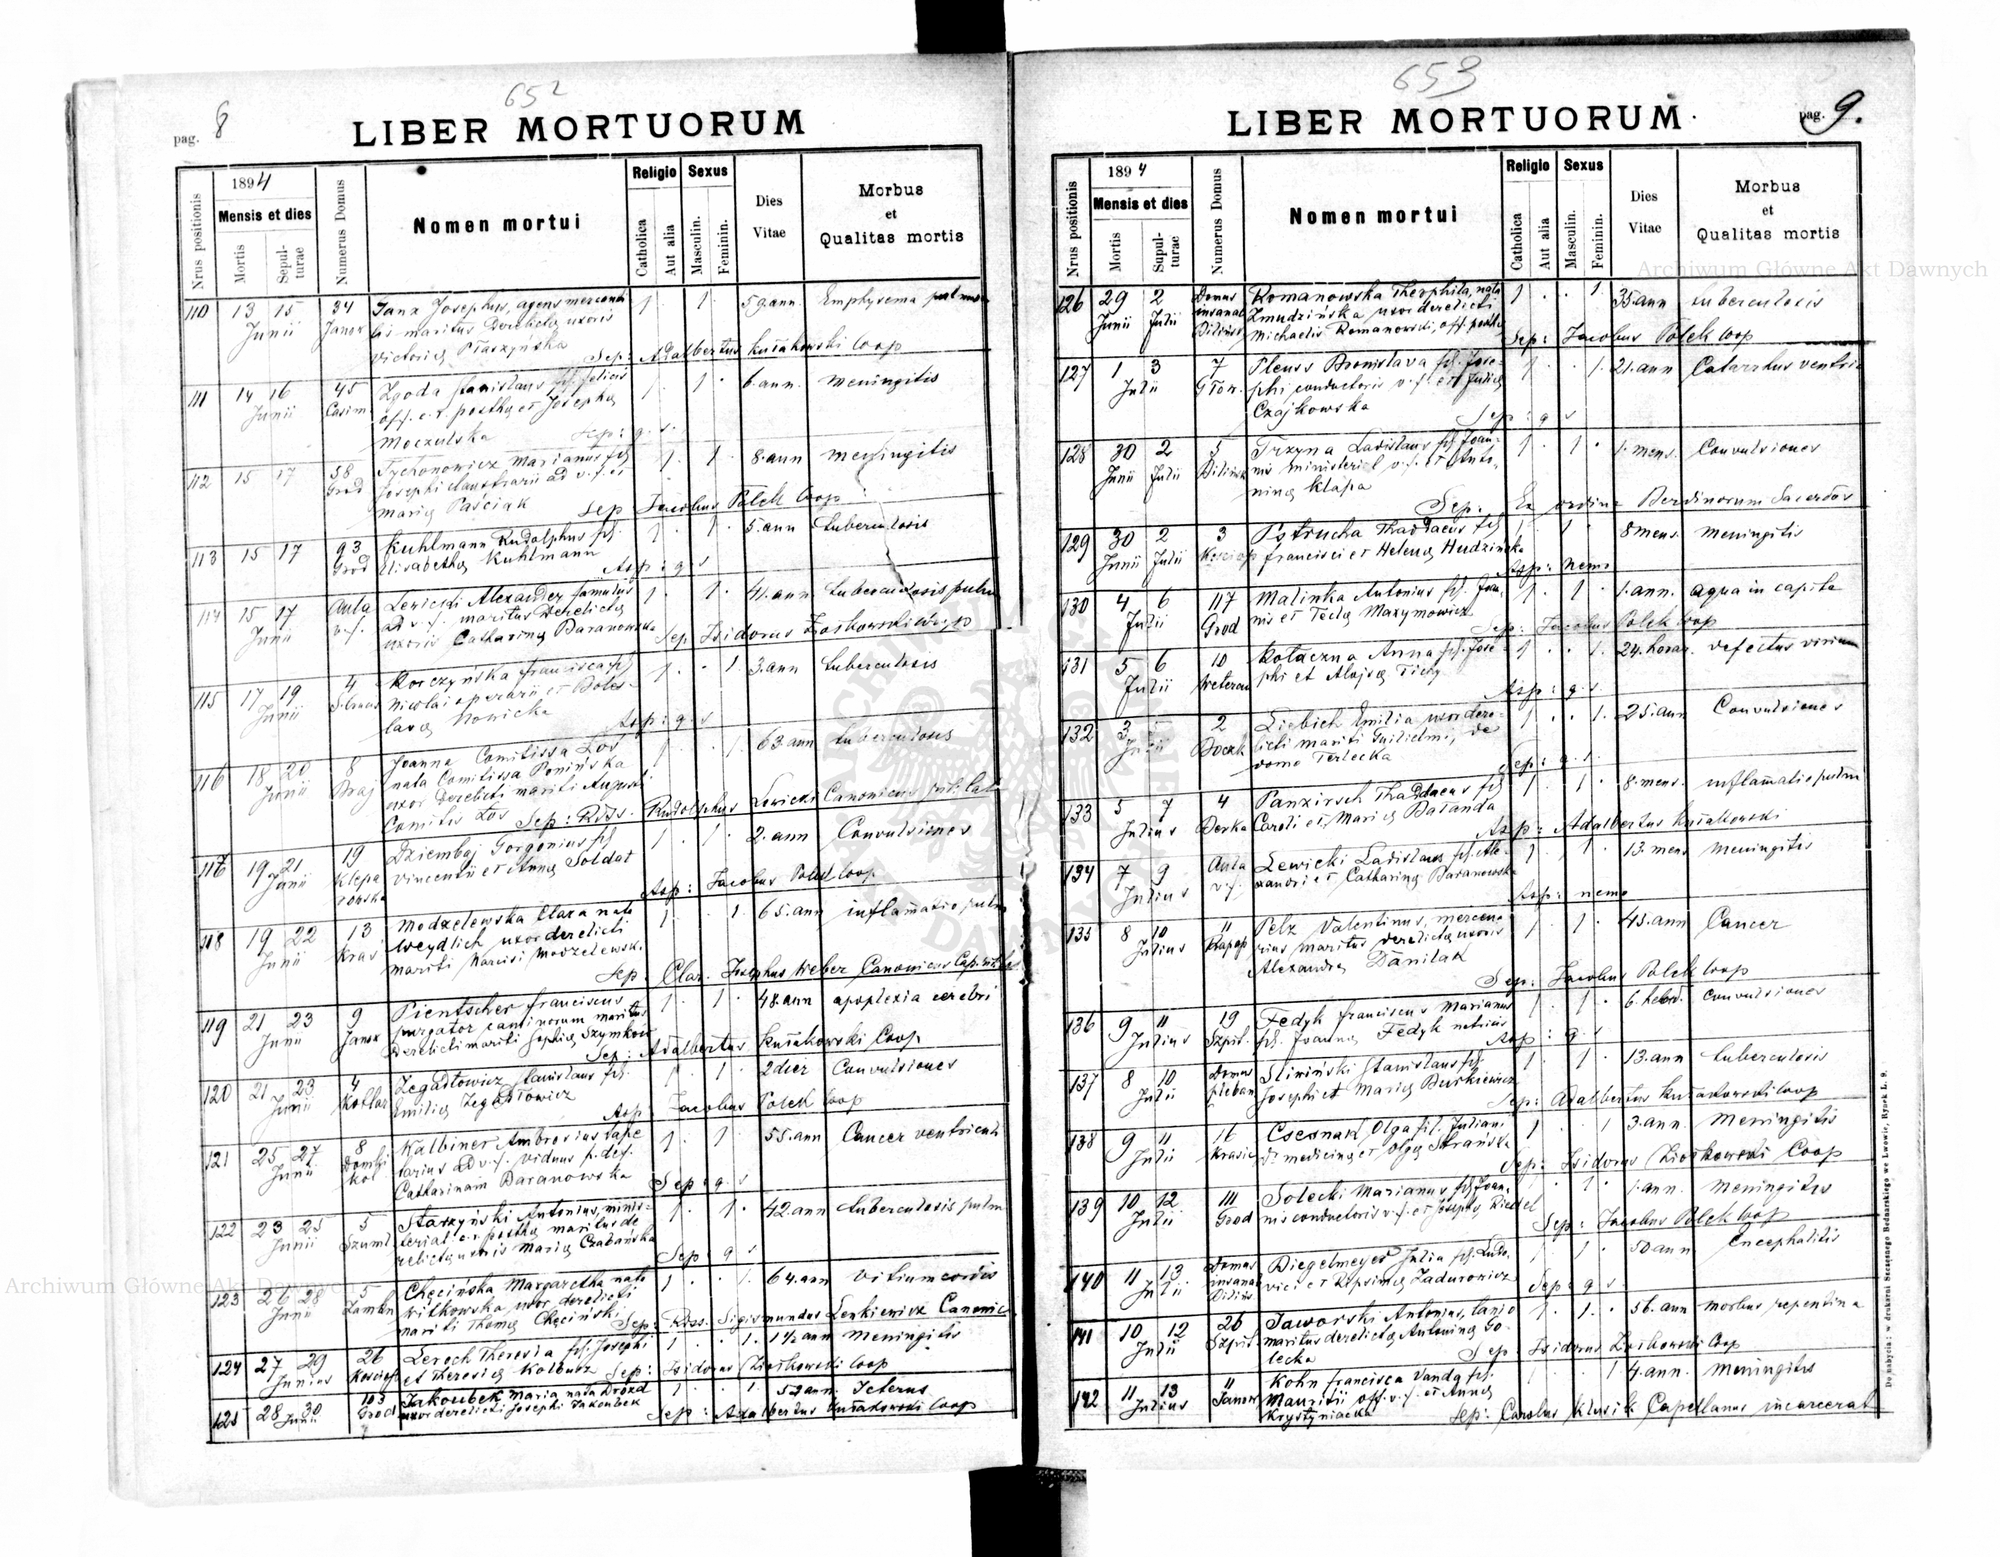 652
pag. 8
LIBER MORTUORUM
Nrus positionis
1894
Mensis et dies
Mortis
Sepul-
turae
Numerus Domus
Nomen mortui
Religio
Catholica
Aut alia
Sexus
Masculin.
Feminin.
Dies
Vitae
Morbus
et
Qualitas mortis
110 13 15 Junii 34 Janow Josephus, agens mercanti 1 1 59 ann Emphysema pulmon
lis maritus Derelictæ uxoris
Victoriæ Ptaszyńska Sep: Adalbertus Kułakowski Coop
111 14 16 Junii 45 Casim Zgoda Stanislaus fil. Felicis 1 1 6 ann. meningitis
off. c. r. posthæ et Josephæ
Moczulska Sep: q. s.
112 15 17 58 Grod Tychonowicz Marianus fil 1 1 8 ann meningitis
Josephi claustrarii ad v. f. et
Mariæ Paściak Sep Jacobus Polek Coop
113 15 17 93 Grod Kuhlmann Rudolphus fil. 1 1 5 ann tuberculosis
Elisabethæ Kuhlmann Asp: q. s
114 15 17 Junii Aula v. f. Lewicki Alexander famulus 1 1 41 ann tuberculosis pulm
ad v. f. maritus Derelictæ
uxoris Catharinæ Baranowska Sep Isidorus Ziołkowski Coop
115 17 19 Junii 4 Korczyńska Francisca fil 1 1 3 ann tuberculosis
Nicolai operarii et Boles-
lavæ Nowicka Asp: q. s
116 18 20 Junii 8 Joanna Comitissa Łoś 1 1 63 ann tuberculosis
nata Comitissa Ponińska
uxor Derelicti mariti Augusti
Comitis Łoś Sep: Rdss. Rudolphus Lewicki Canonicus
117 19 21 Junii 19 Klepa rowska Dziembaj Gorgonius fil 1 1 2 ann Convulsiones
Vincentii et Annæ Soldat
Asp: Jacobus Polek Coop
118 19 22 Junii 13 Kras Modzelewska Clara nata 1 1 65 ann inflamatio pulm
Weydlich uxor derelicti
mariti Narcisi Modzelewski
Sep: Clar. Josephus Weber Canonicus Capituli
119 21 23 Junii 9 Janow Pientscher Franciscus 1 1 48 ann apoplexia cerebri
purgator caminorum maritus
Derelicti mariti Sophiæ Szymkow
Sep: Adalbertus Kułakowski Coop.
120 21 23 Junii 4 Kotlar Zegadłowicz Stanislaus fil. 1 1 2 dier Convulsiones
Emiliæ Zegadłowicz Asp Jacobus Polek Coop
121 25 27 Junii 8 Kalbiner Ambrosius tape 1 1 55 ann Cancer ventriculi
tarius ad v. f. viduus p. def.
Catharinam Baranowska Sep: q. s
122 23 25 Junii 5 Szuml Starzyński Antonius, minis- 1 1 42 ann tuberculosis pulm
terial c. r. posthæ maritus de
relictæ uxoris Mariæ Czabańska Sep: q s
123 26 28 Junii 5 Zambn Chęcińska Margaretha nata 1 1 64 ann vitium cordis
Witkowska uxor derelicti
mariti Thomæ Chęciński Sep: Rdss. Sigismundus Lenkiewicz Canonic
124 27 29 Junius 26 Leroch Theresia fil. Josephi 1 1 1½ ann Meningitis
et Theresiæ Kolbusz Sep: Isidorus Ziołkowski Coop
125 28 30 Junii 103 Grod Jakoubek Maria nata Drozd 1 1 52 ann. Icterus
uxor derelicti Josephi Jakoubek Sep: Adalbertus Kułakowski Coop
653
pag. 9.
LIBER MORTUORUM
Nrus positionis
1894
Mensis et dies
Mortis
Supul-
turae
Numerus Domus
Nomen mortui
Religio
Catholica
Aut alia
Sexus
Masculin.
Feminin.
Dies
Vitae
Morbus
et
Qualitas mortis
126 29 Junii 2 Julii Domus insana Romanowska Theophila, nata 1 1 35 ann tuberculosis
Żmudzińska uxor derelicti
Michaelis Romanowski, off. posthæ Sep: Jacobus Polek Coop
127 1 3 Julii 7 Pleuss Bronislava fil. Jose- 1 1 21 ann Catarrhus ventric
phi conductoris v. f. et Juliæ
Czajkowska Sep: q s
128 30 Junii 2 Julii 5 Trzyna Ladislaus fil Joan- 1 1 1 mens. Convulsiones
nis ministerial v. f. et Anto-
ninæ Kłapa Sep: Ex ordine Berdinorum Sacerdos
129 30 Junii 2 Julii 3 Pstrucha Thaddaeus fil 1 1 8 mens. meningitis
Francisci et Helenæ Hudzińska Asp: nemo
130 4 6 Julii 117 Grod Malinka Antonius fil. Joa- 1 1 1 ann. aqua in capite
nis et Teclæ Maxymowicz Sep: Jacobus Polek Coop
131 5 6 Julii 10 Weteran Kołaczna Anna fil. Jose- 1 1 24 horar. defectus virium
phi et Aloysæ Tichy Asp: q. s.
132 3 5 Julii 2 Liebich Emilia uxor dere- 1 1 25 ann Convulsiones
licti mariti Guilielmi, de
domo Terlecka Sep: q. s.
133 5 7 Julius 4 Berka Panzirsch Thaddaeus fil 1 1 8 mens. inflamatio pulm
Caroli et Mariæ Baranda Asp: Adalbertus Kułakowski
134 7 9 Julius Aula v. f. Lewicki Ladislaus fil. Ale- 1 1 13 mens meningitis
xandri et Catharinæ Baranowska Asp: nemo
135 8 10 Julius 11 Pelz Valentinus, mercena 1 1 45 ann Cancer
rius, maritus derelictæ uxoris
Alexandræ Danilak Sep: Jacobus Polek Coop
136 9 11 Julius 19 Szpit. Fedyk Franciscus Marianus 1 1 6 hebd. Convulsiones
fil. Joannæ Fedyk nutricis Asp: q s
137 8 10 Julii Domus pleban Sliwiński Stanislaus fil. 1 1 13 ann tuberculosis
Josephi et Mariæ Burkiewicz Sep: Adalbertus Kułakowski Coop
138 9 11 Julii 16 Krasic Csesnak Olga fil. Juliani 1 1 3 ann. Meningitis
Dr medicinæ et Olgæ Strańska Sep: Isidorus Ziołkowski Coop
139 10 12 Julii 111 Grod Solecki Marianus fil Joan. 1 1 1 ann. Meningitis
nis conductoris v. f. et Josephæ Riedel Sep: Jacobus Polek Coop
140 11 13 Julii Domus insana Biegelmeyer Julia fil. Ludo- 1 1 50 ann Encephalitis
vici et Ripsimæ Zadurowicz Sep: q s
141 10 12 Julii 26 Szpit Jaworski Antonius, lanio 1 1 56 ann morbus repentina
maritus derelictæ Antoninæ Go-
lecka Sep Isidorus Ziołkowski Coop
142 11 13 Julius 11 Janow Kohn Francisca Vanda fil. 1 4 ann. Meningitis
Mauritii off. v. f. et Annæ
Krystyniacka Sep: Carolus Klusik Capellanus incarcerat
Do nabycia: w drukarni Szczęsnego Bednarskiego we Lwowie, Rynek L. 9.
Archiwum Główne Akt Dawnych
Archiwum Główne Akt Dawnych
ARCHIWUM GŁÓWNE AKT DAWNYCH